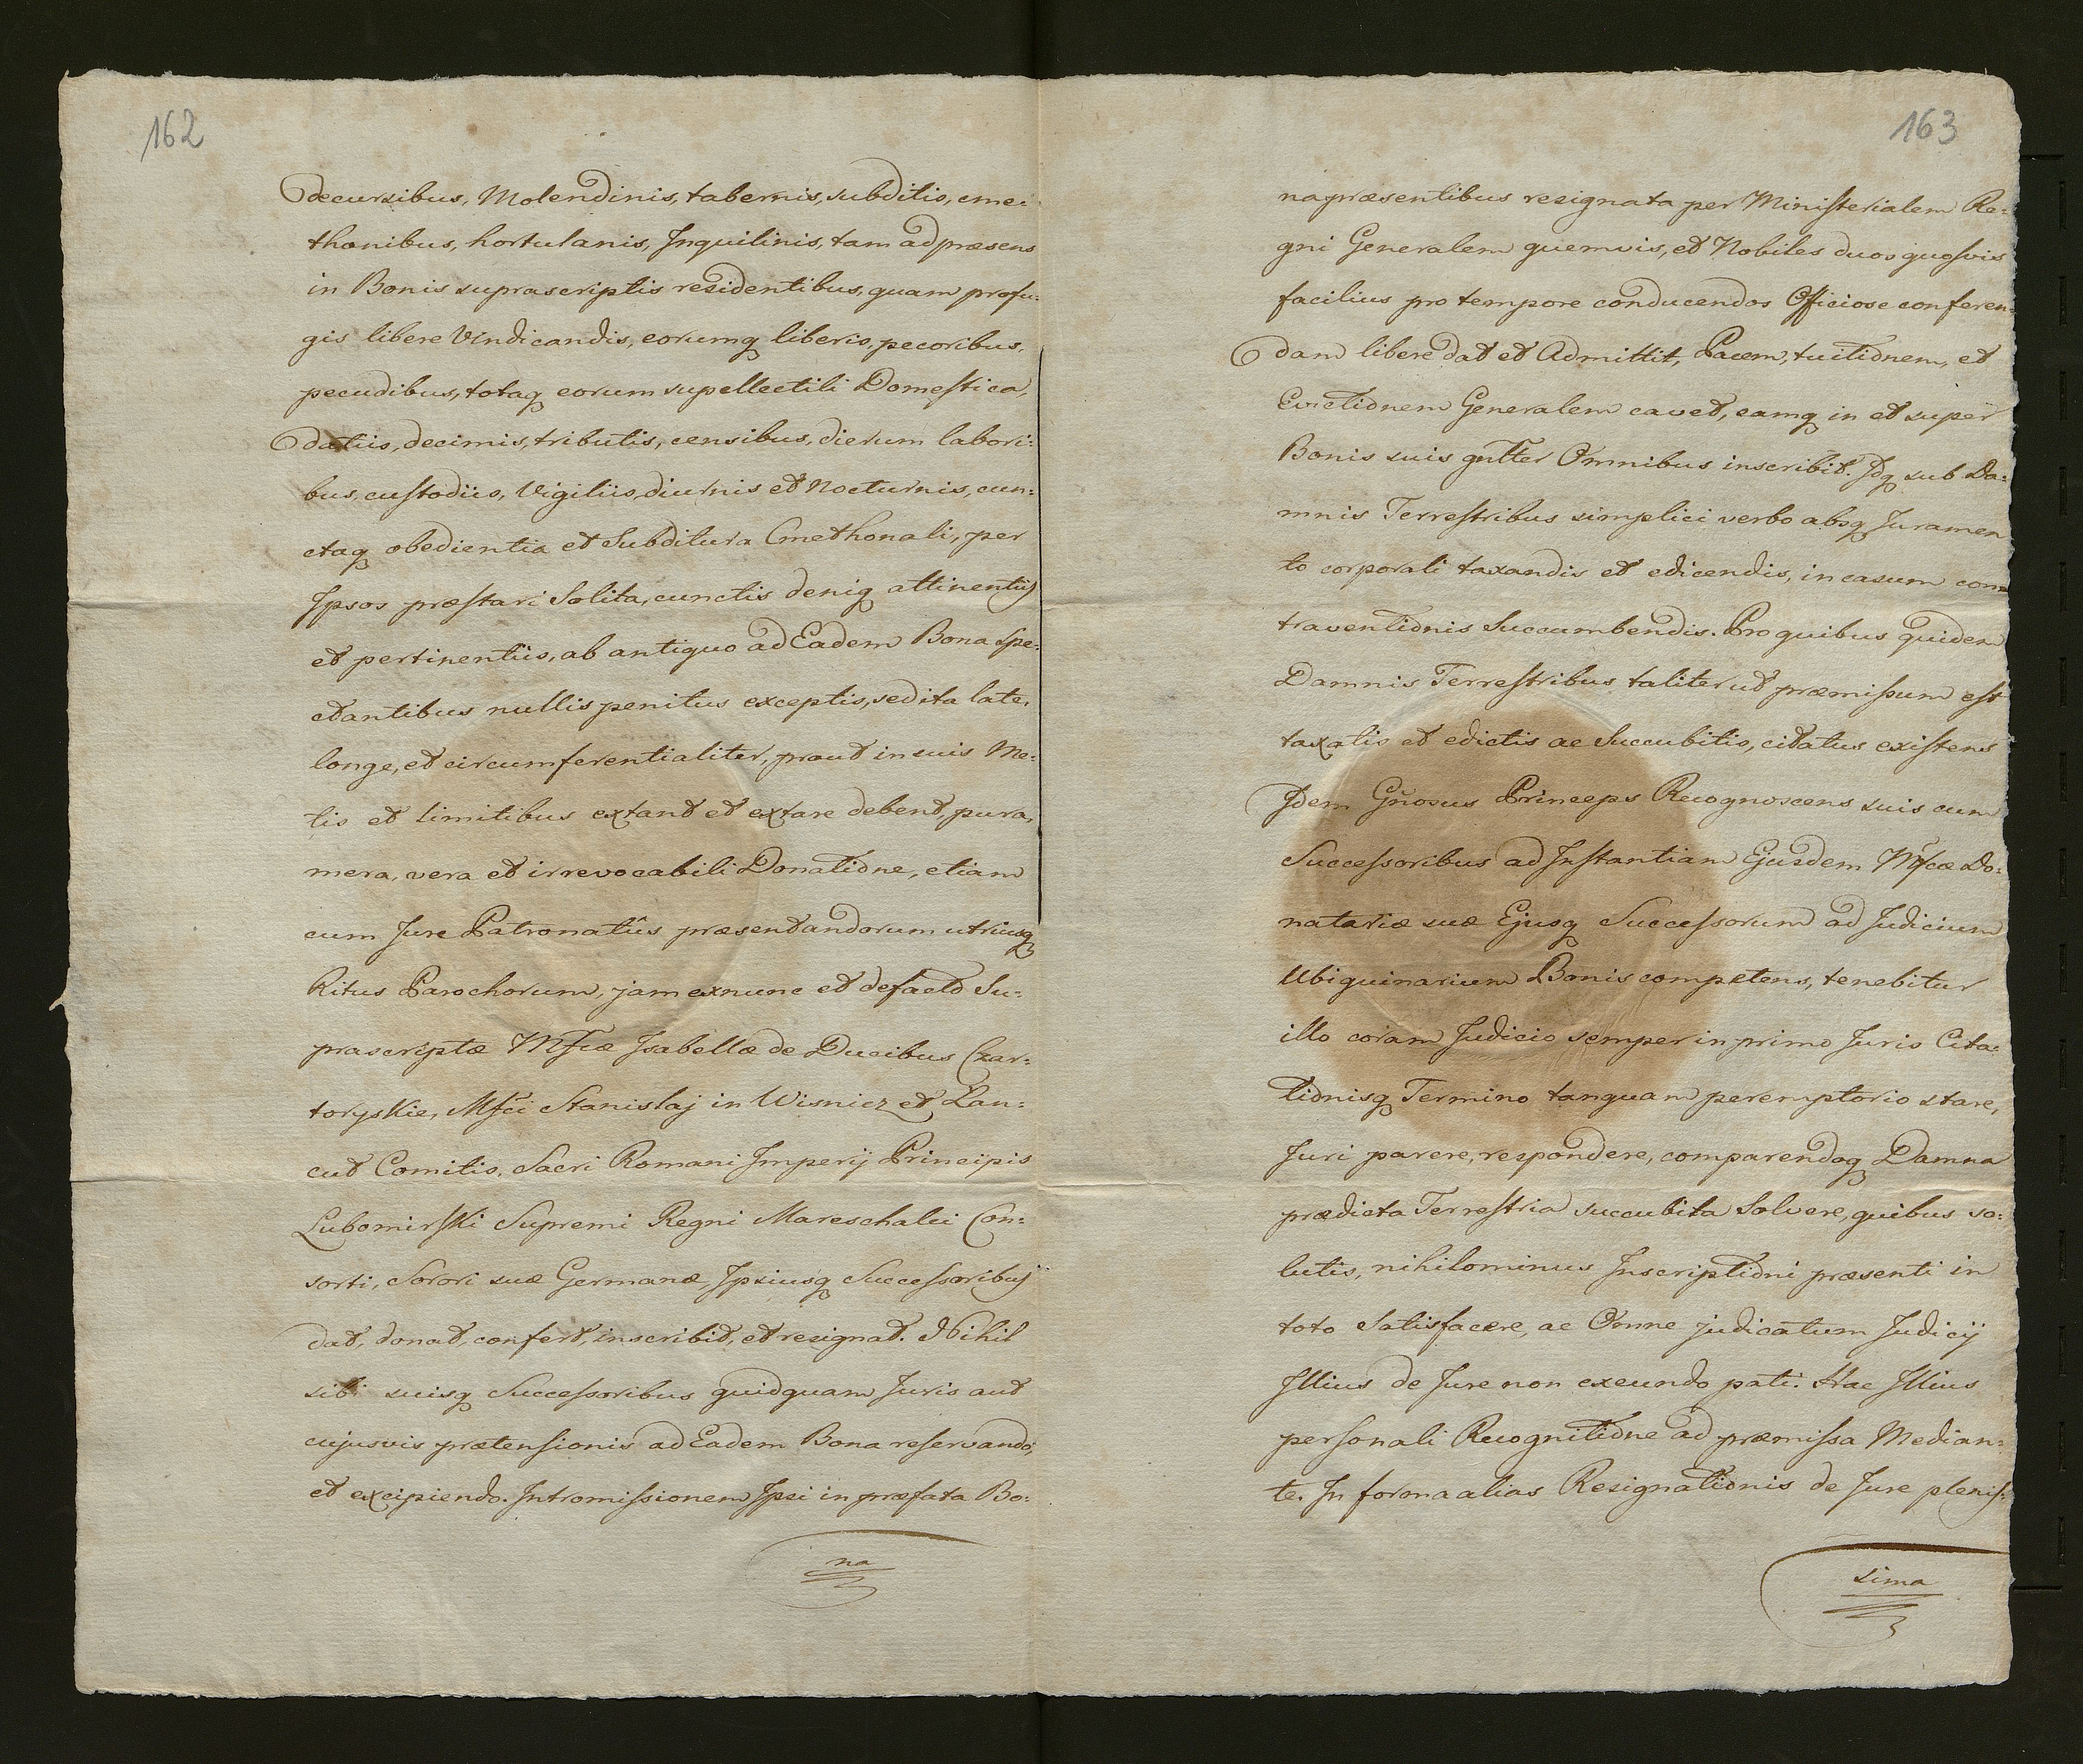 162
decursibus, Molendinis, tabernis, subditis, cme:
thonibus, hortulanis, Inquilinis, tam ad præsens
in Bonis suprascriptis residentibus, quam profu:
gis libere Vindicandis, eorumq liberis, pecoribus,
pecudibus, totaq eorum supellectili Domestica,
datiis, decimis, tributis, censibus, dierum labori:
bus, custodiis, Vigiliis, diurnis et Nocturnis, cun:
ctaq obedientia et Subditura Cmethonali, per
Ipsos præstari Solita, cunctis deniq attinentijs
et pertinentiis, ab antiquo ad Eadem Bona Spe:
ctantibus nullis penitus exceptis, sed ita late,
longe, et circumferentialiter, prout in suis Me:
tis et limitibus extant et extare debent, pura,
mera, vera et irrevocabili Donatione, etiam
cum Jure Patronatûs præsentandorum utriusq
Ritus Parochorum, jam exnunc et defacto Su:
prascriptæ Mfcæ Isabellæ de Ducibus Czar:
toryskie, Mfci Stanislaj in Wisnicz et Lan:
cut Comitis, Sacri Romani Imperij Principis
Lubomirski Supremi Regni Mareschalci Con:
sorti, Sorori suæ Germanæ, Ipsiusq Successoribus
dat, donat, confert, inscribit, et resignat. Nihil
sibi suisq Successoribus quidquam Juris aut
cujusvis prætensionis ad Eadem Bona reservando,
et excipiendo. Intromissionem Ipsi in præfata Bo:
na
163
na præsentibus resignata per Ministerialem Re:
gni Generalem quemvis, et Nobiles duos quosvis
facilius pro tempore conducendos Officiose conferen
dam libere dat et Admittit, Pacem, tuitionem, et
Evictionem Generalem cavet, eamq in et super
Bonis suis gntter Omnibus inscribit. Idq sub Da:
mnis Terrestribus simplici verbo absq Juramen
to corporali taxandis et edicendis, in casum con:
traventionis Succumbendis. Pro quibus quidem
Damnis Terrestribus taliter ut præmissum est
taxatis et edictis ac Succubitis, citatus existens
Idem Gnosus Princeps Recognoscens suis cum
Successoribus ad Instantiam Ejusdem Mfcæ Do:
natariæ suæ Ejusq Successorum ad Judicium
Ubiquinarium Bonis competens, tenebitur
illo coram Judicio semper in primo Juris Cita:
tionisq Termino tanquam peremptorio stare,
Juri parere, respondere, comparendoq Damna
prædicta Terrestria succubita Solvere, quibus so:
lutis, nihilominus Inscriptioni præsenti in
toto Satisfacere, ac Omne judicatum Judicij
Illius de Jure non exeundo pati. Hac Illius
personali Recognitione ad præmissa Median:
te. In forma alias Resignationis de Jure plenis:
sima